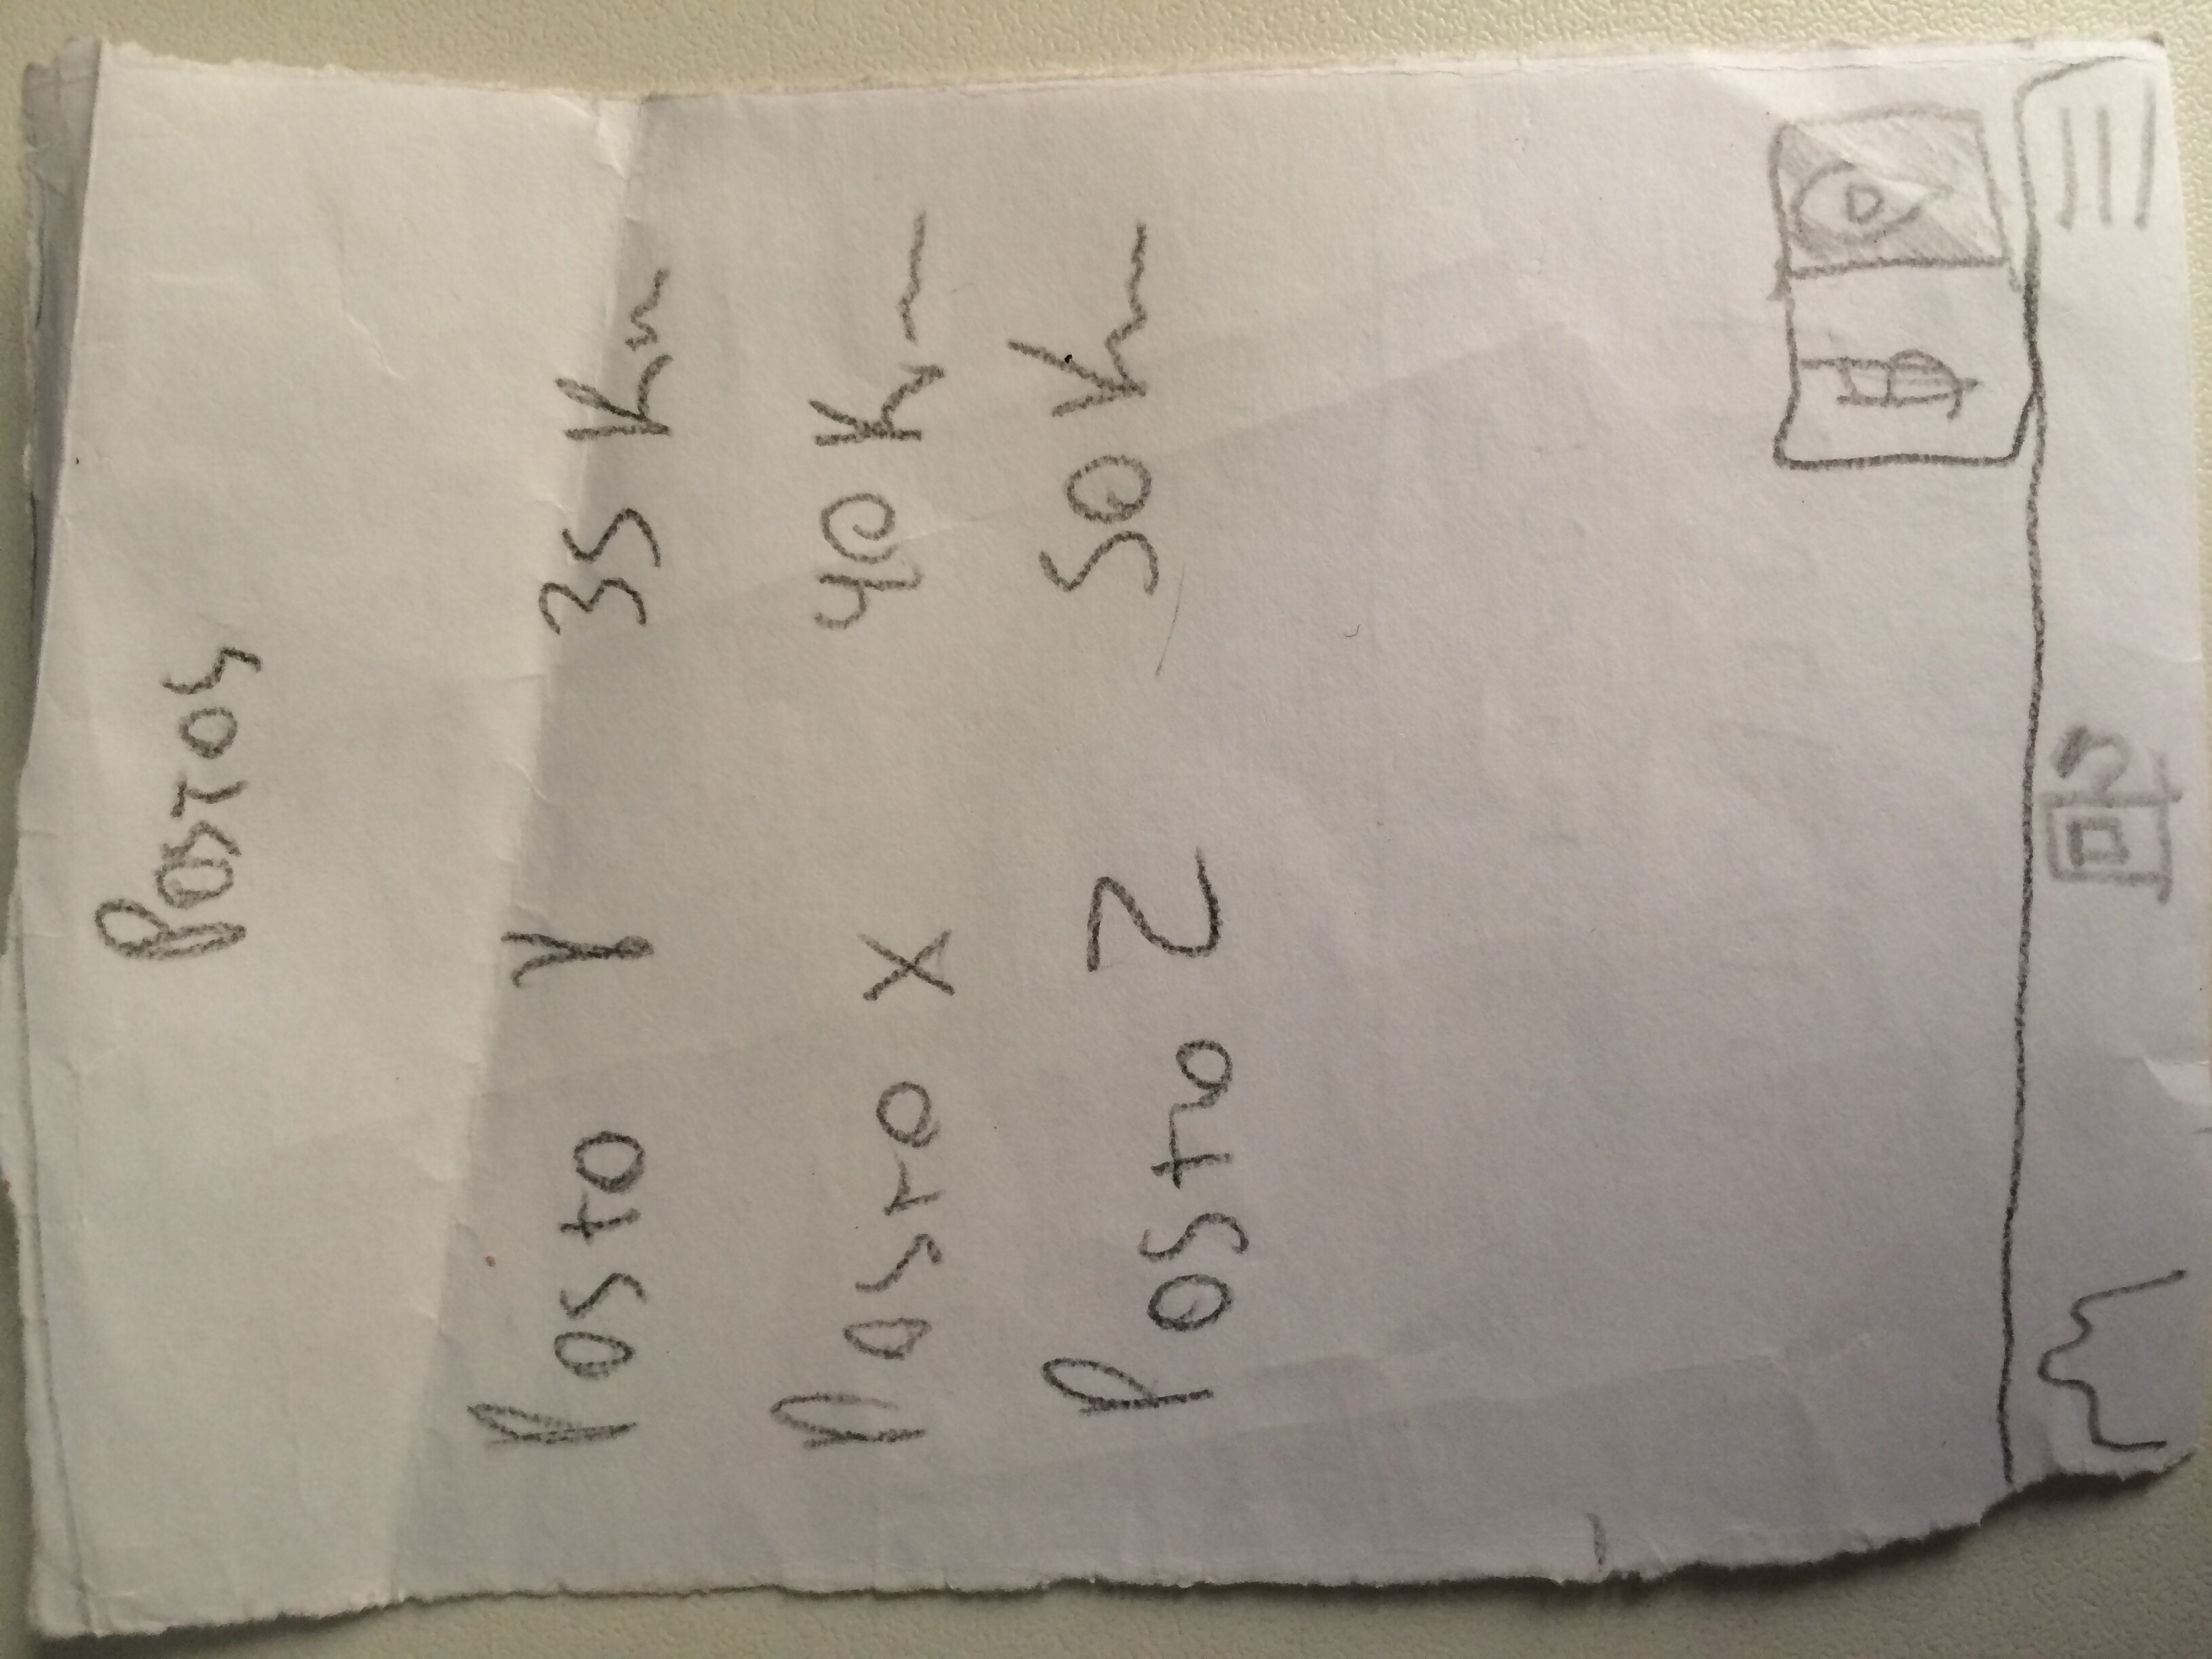 Postos
Posto Y 35 Km
Posto X 40 Km
Posto Z 50 Km
$